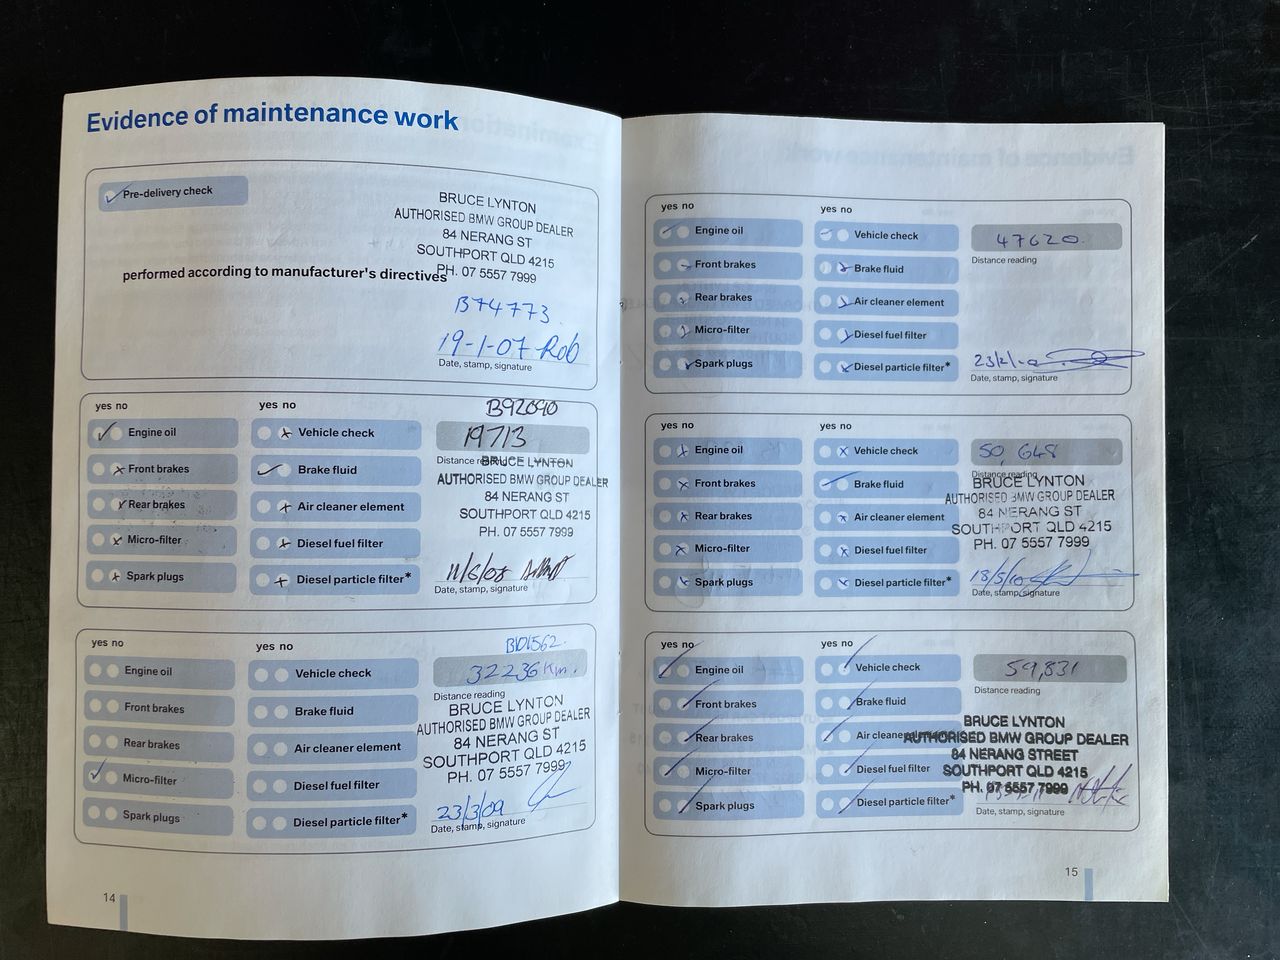 Evidence of maintenance work
Pre-delivery check
BRUCE LYNTON
AUTHORISED BMW GROUP DEALER
84 NERANG ST
SOUTHPORT QLD 4215
PH. 07 5557 7999
performed according to manufacturer's directives
B74773
19-1-07 Rob
Date, stamp, signature
yes no yes no B92090
Engine oil Vehicle check 19713
Front brakes Brake fluid Distance reading
BRUCE LYNTON
AUTHORISED BMW GROUP DEALER
Rear brakes Air cleaner element 84 NERANG ST
SOUTHPORT QLD 4215
Micro-filter Diesel fuel filter PH. 07 5557 7999
Spark plugs Diesel particle filter* 11/6/08
Date, stamp, signature
yes no yes no B101562
Engine oil Vehicle check 32236 Km.
Distance reading
Front brakes Brake fluid BRUCE LYNTON
AUTHORISED BMW GROUP DEALER
Rear brakes Air cleaner element 84 NERANG ST
SOUTHPORT QLD 4215
Micro-filter Diesel fuel filter PH. 07 5557 7999
Spark plugs Diesel particle filter* 23/3/09
Date, stamp, signature
14
yes no yes no
Engine oil Vehicle check 47620
Front brakes Brake fluid Distance reading
Rear brakes Air cleaner element
Micro-filter Diesel fuel filter
Spark plugs Diesel particle filter*
Date, stamp, signature
yes no yes no
Engine oil Vehicle check 50,648
Distance reading
Front brakes Brake fluid BRUCE LYNTON
AUTHORISED BMW GROUP DEALER
Rear brakes Air cleaner element 84 NERANG ST
SOUTHPORT QLD 4215
Micro-filter Diesel fuel filter PH. 07 5557 7999
Spark plugs Diesel particle filter* 18/5/10
Date, stamp, signature
yes no yes no
Engine oil Vehicle check 59,831
Distance reading
Front brakes Brake fluid
BRUCE LYNTON
Rear brakes Air cleaner element AUTHORISED BMW GROUP DEALER
84 NERANG STREET
Micro-filter Diesel fuel filter SOUTHPORT QLD 4215
PH. 07 5557 7999
Spark plugs Diesel particle filter*
Date, stamp, signature
15